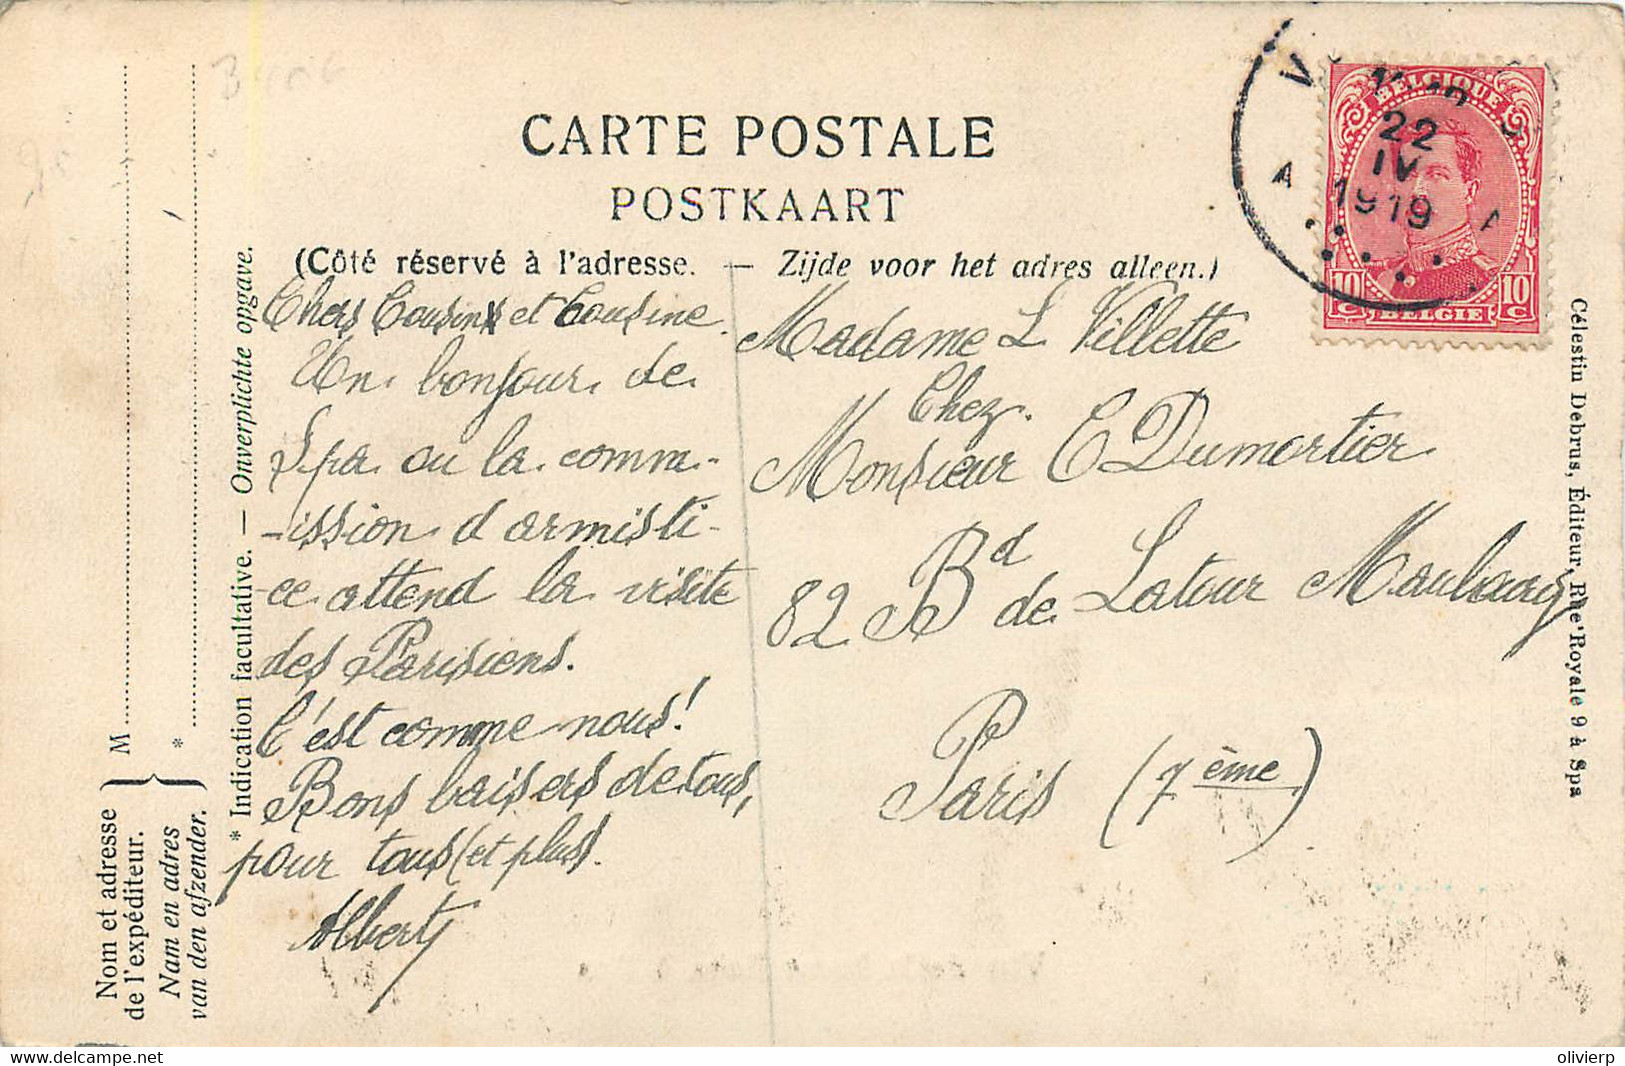 CARTE POSTALE
POSTKAART
(Côté réservé à l'adresse. — Zijde voor het adres alleen.)
BELGIQUE
22
IV
1919
10 C
10 C
BELGIE
Chers Cousins et Cousine.
Un bonjour de
Spa ou la comm-
-ission d'armisti-
-ce attend la visite
des Parisiens.
C'est comme nous!
Bons baisers de tous,
pour tous (et plus).
Albert
Madame L. Villette
Chez.
Monsieur E Dumortier
82 Bd de Latour Maubourg
Paris (7ème)
Célestin Debrus, Éditeur, Rue Royale 9 à Spa
* Indication facultative. — Onverplichte opgave.
M
*
Nom et adresse
de l'expéditeur.
Nam en adres
van den afzender.
delcampe.net
olivierp